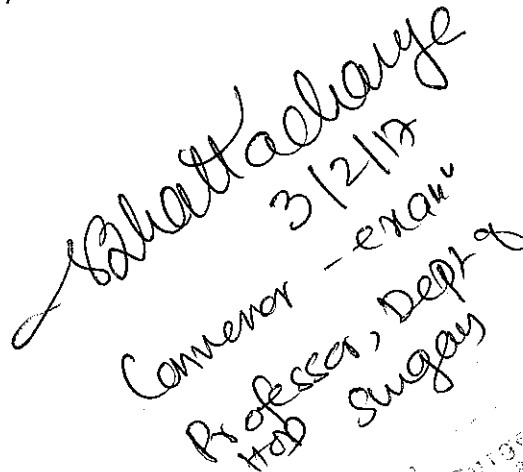 Bhattacharya
3/2/17
Convenor - exam
Professor, Dept of
HOD Surgery